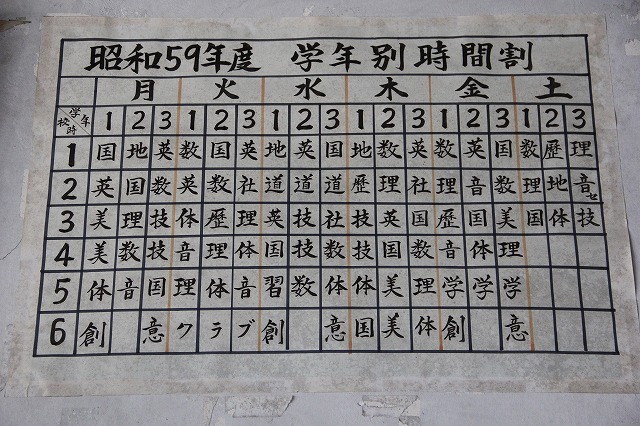 昭和59年度 学年別時間割
月 火 水 木 金 土
学年 校時 1 2 3 1 2 3 1 2 3 1 2 3 1 2 3 1 2 3
1 国 地 英 数 国 英 地 英 国 地 数 英 数 英 国 数 歴 理
2 英 国 数 英 数 社 道 道 道 歴 理 社 理 音 数 理 地 音セ
3 美 理 技 体 歴 理 英 技 社 技 英 国 歴 国 美 国 体 技
4 美 数 技 音 理 体 国 技 数 技 国 数 音 体 理
5 体 音 国 理 体 音 習 数 体 体 美 理 学 学 学
6 創 意 ク ラ ブ 創 意 国 美 体 創 意